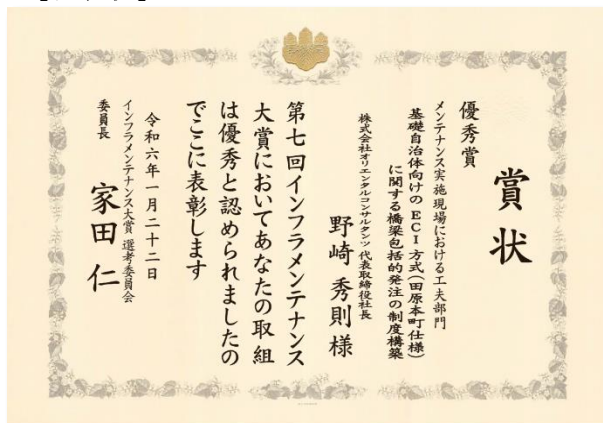 賞状
優秀賞
メンテナンス実施現場における工夫部門
基礎自治体向けのECI方式(田原本町仕様)
に関する橋梁包括的発注の制度構築
株式会社オリエンタルコンサルタンツ 代表取締役社長
野崎 秀則 様
第七回インフラメンテナンス
大賞においてあなたの取組
は優秀と認められましたの
でここに表彰します
令和六年一月二十二日
インフラメンテナンス大賞 選考委員会
委員長
家田 仁